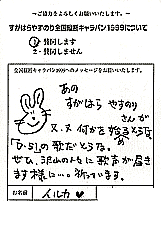 〜ご協力をよろしくお願いいたします。〜
すがはらやすのり全国縦断キャラバン1999について
1. 賛同します
2. 賛同しません
全国縦断キャラバン1999へのメッセージをお願いいたします。
あの
すがはら やすのり
さんが
又、又、何かを始めそうな
の歌だとうな。
ぜひ、沢山の人に歌声が届き
ます様に…。祈っています。
お名前 イルカ ♥